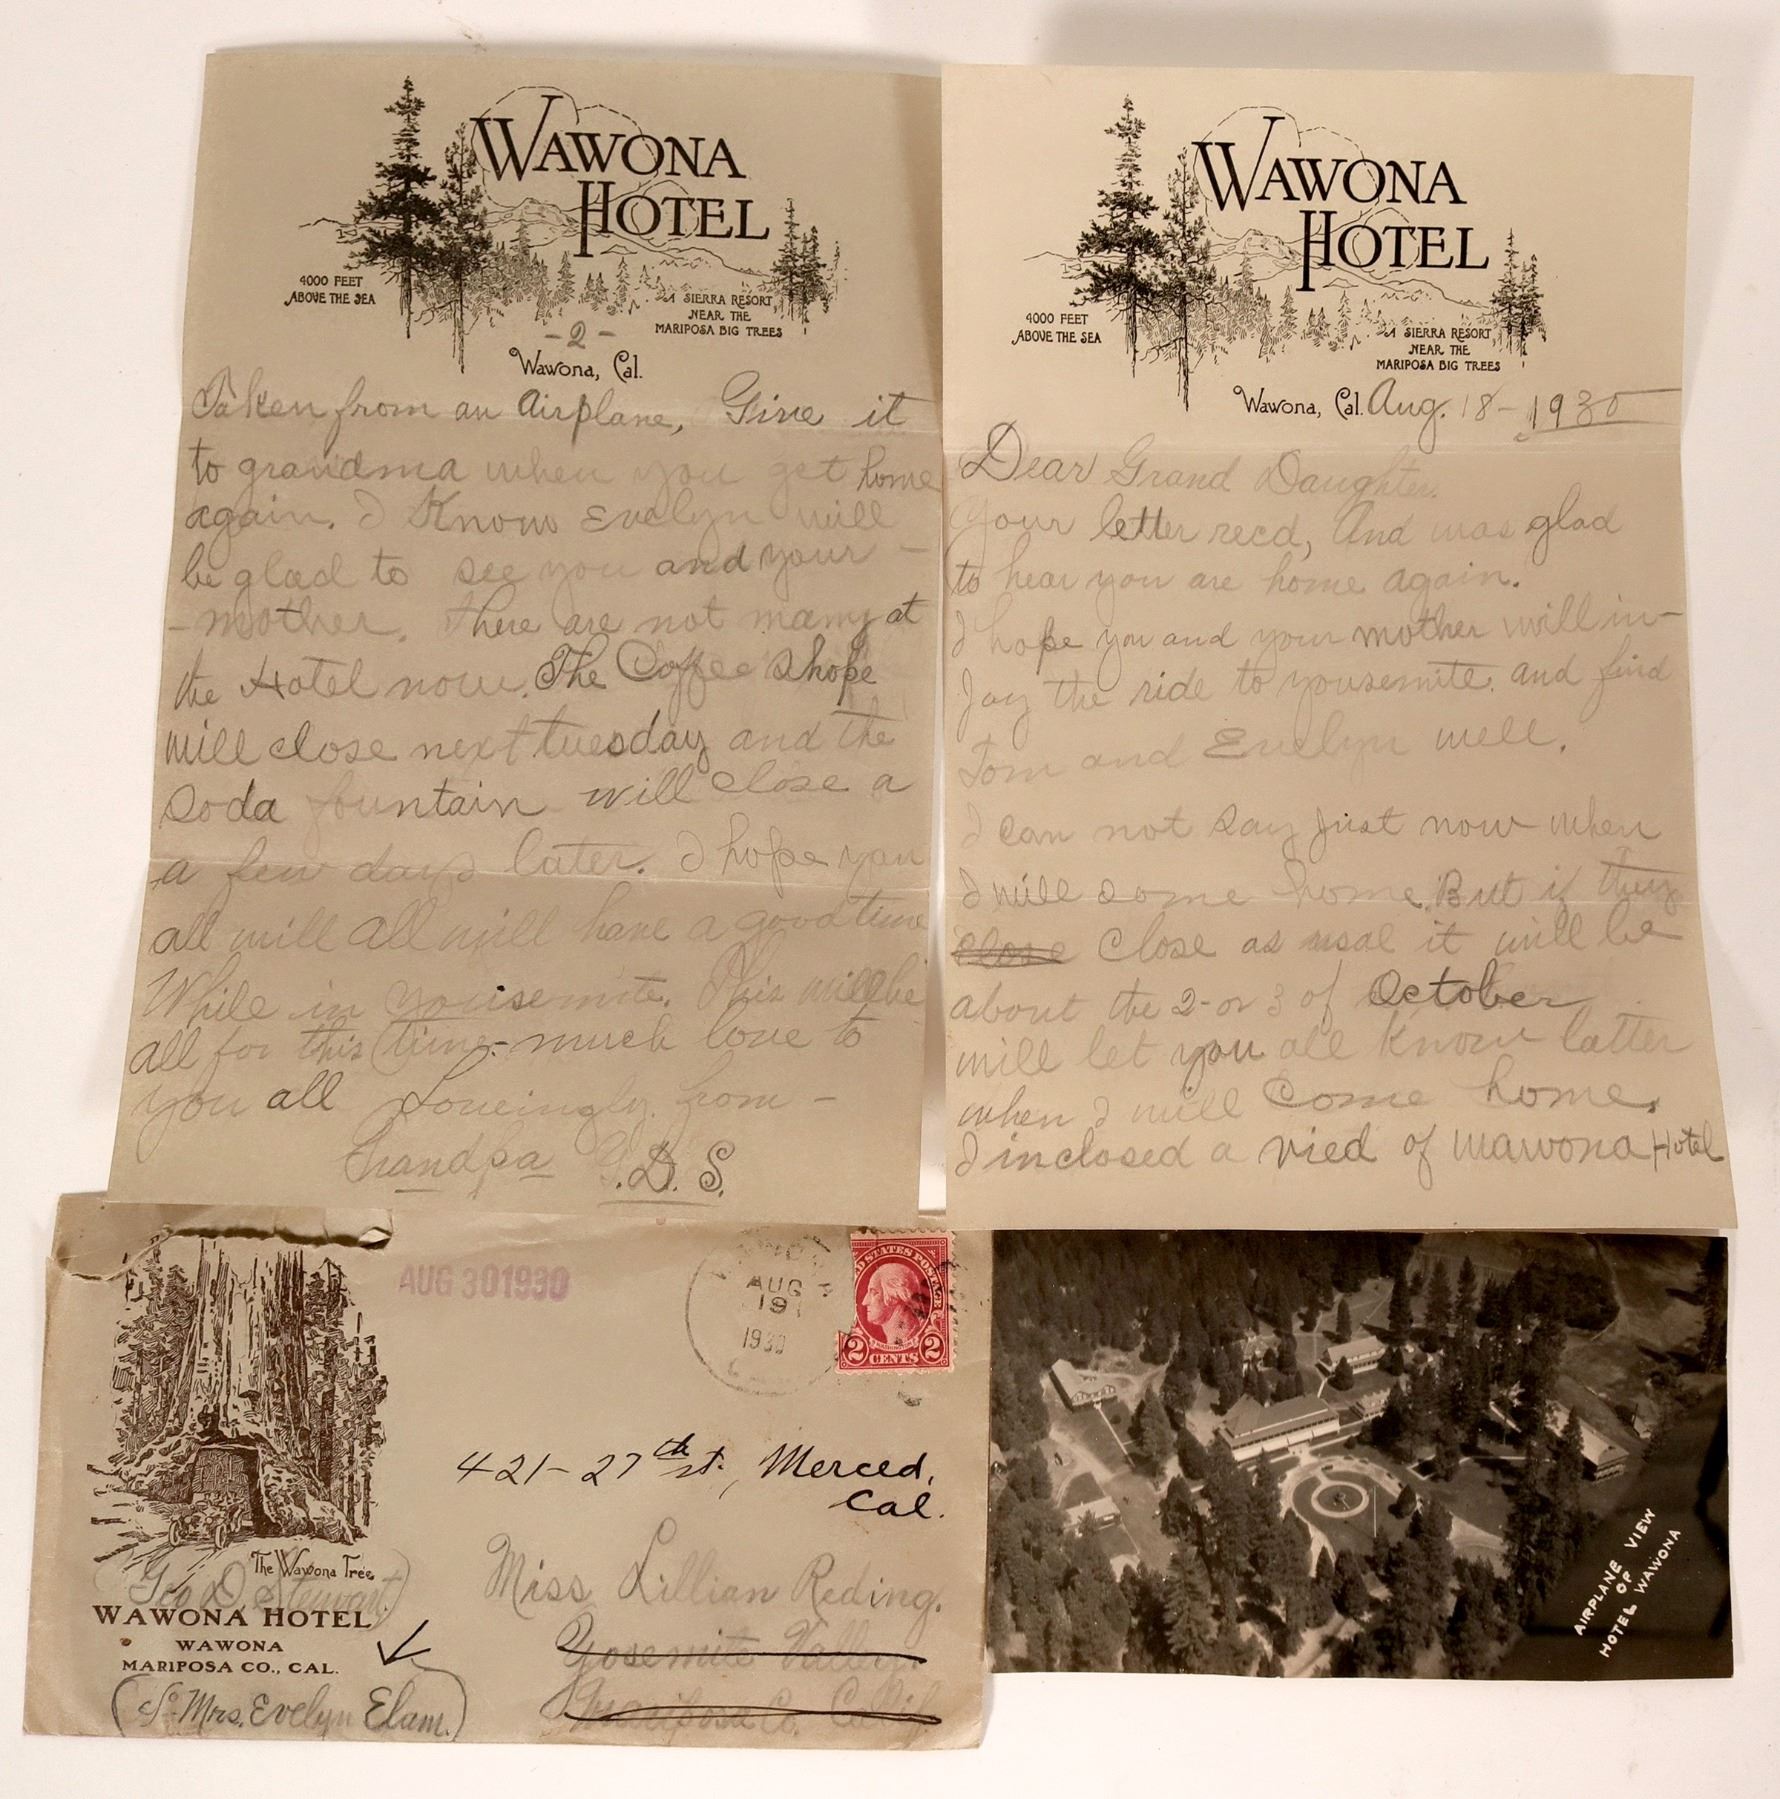 WAWONA
HOTEL
4000 FEET
ABOVE THE SEA
A SIERRA RESORT
NEAR THE
MARIPOSA BIG TREES
Wawona, Cal. Aug. 18 - 1930
Dear Grand Daughter.
Your letter recd, And was glad
to hear you are home again.
I hope you and your mother will in-
Joy the ride to yousemite. and find
Tom and Evelyn well.
I can not say Just now when
I will come home. But if they
close Close as usal it will be
about the 2- or 3 of October
will let you all Know latter
when I will Come home.
I inclosed a vied of wawona Hotel
WAWONA
HOTEL
4000 FEET
ABOVE THE SEA
A SIERRA RESORT
NEAR THE
MARIPOSA BIG TREES
- 2 -
Wawona, Cal.
Taken from an Airplane, Give it
to grandma when you get home
again. I Know Evelyn will
be glad to see you and your -
- mother. There are not many at
the Hotel now. The Coffee Shope
will close next tuesday and the
Soda fountain will close a
a few days later. I hope you
all will all will have a good time
While in yousemite. This will be
all for this time - much love to
you all Loveingly from -
Grandpa G.D.S.
AUG 30 1930
AUG
19
1930
UNITED STATES POSTAGE
WASHINGTON
2 CENTS 2
421- 27th st., Merced,
Cal.
Miss Lillian Reding.
Yosemite Valley.
Mariposa Co. Calif.
The Wawona Tree
Geo D. Stewart)
WAWONA HOTEL
WAWONA
MARIPOSA CO., CAL.
Mrs. Evelyn Elam.)
AIRPLANE VIEW
OF
HOTEL WAWONA